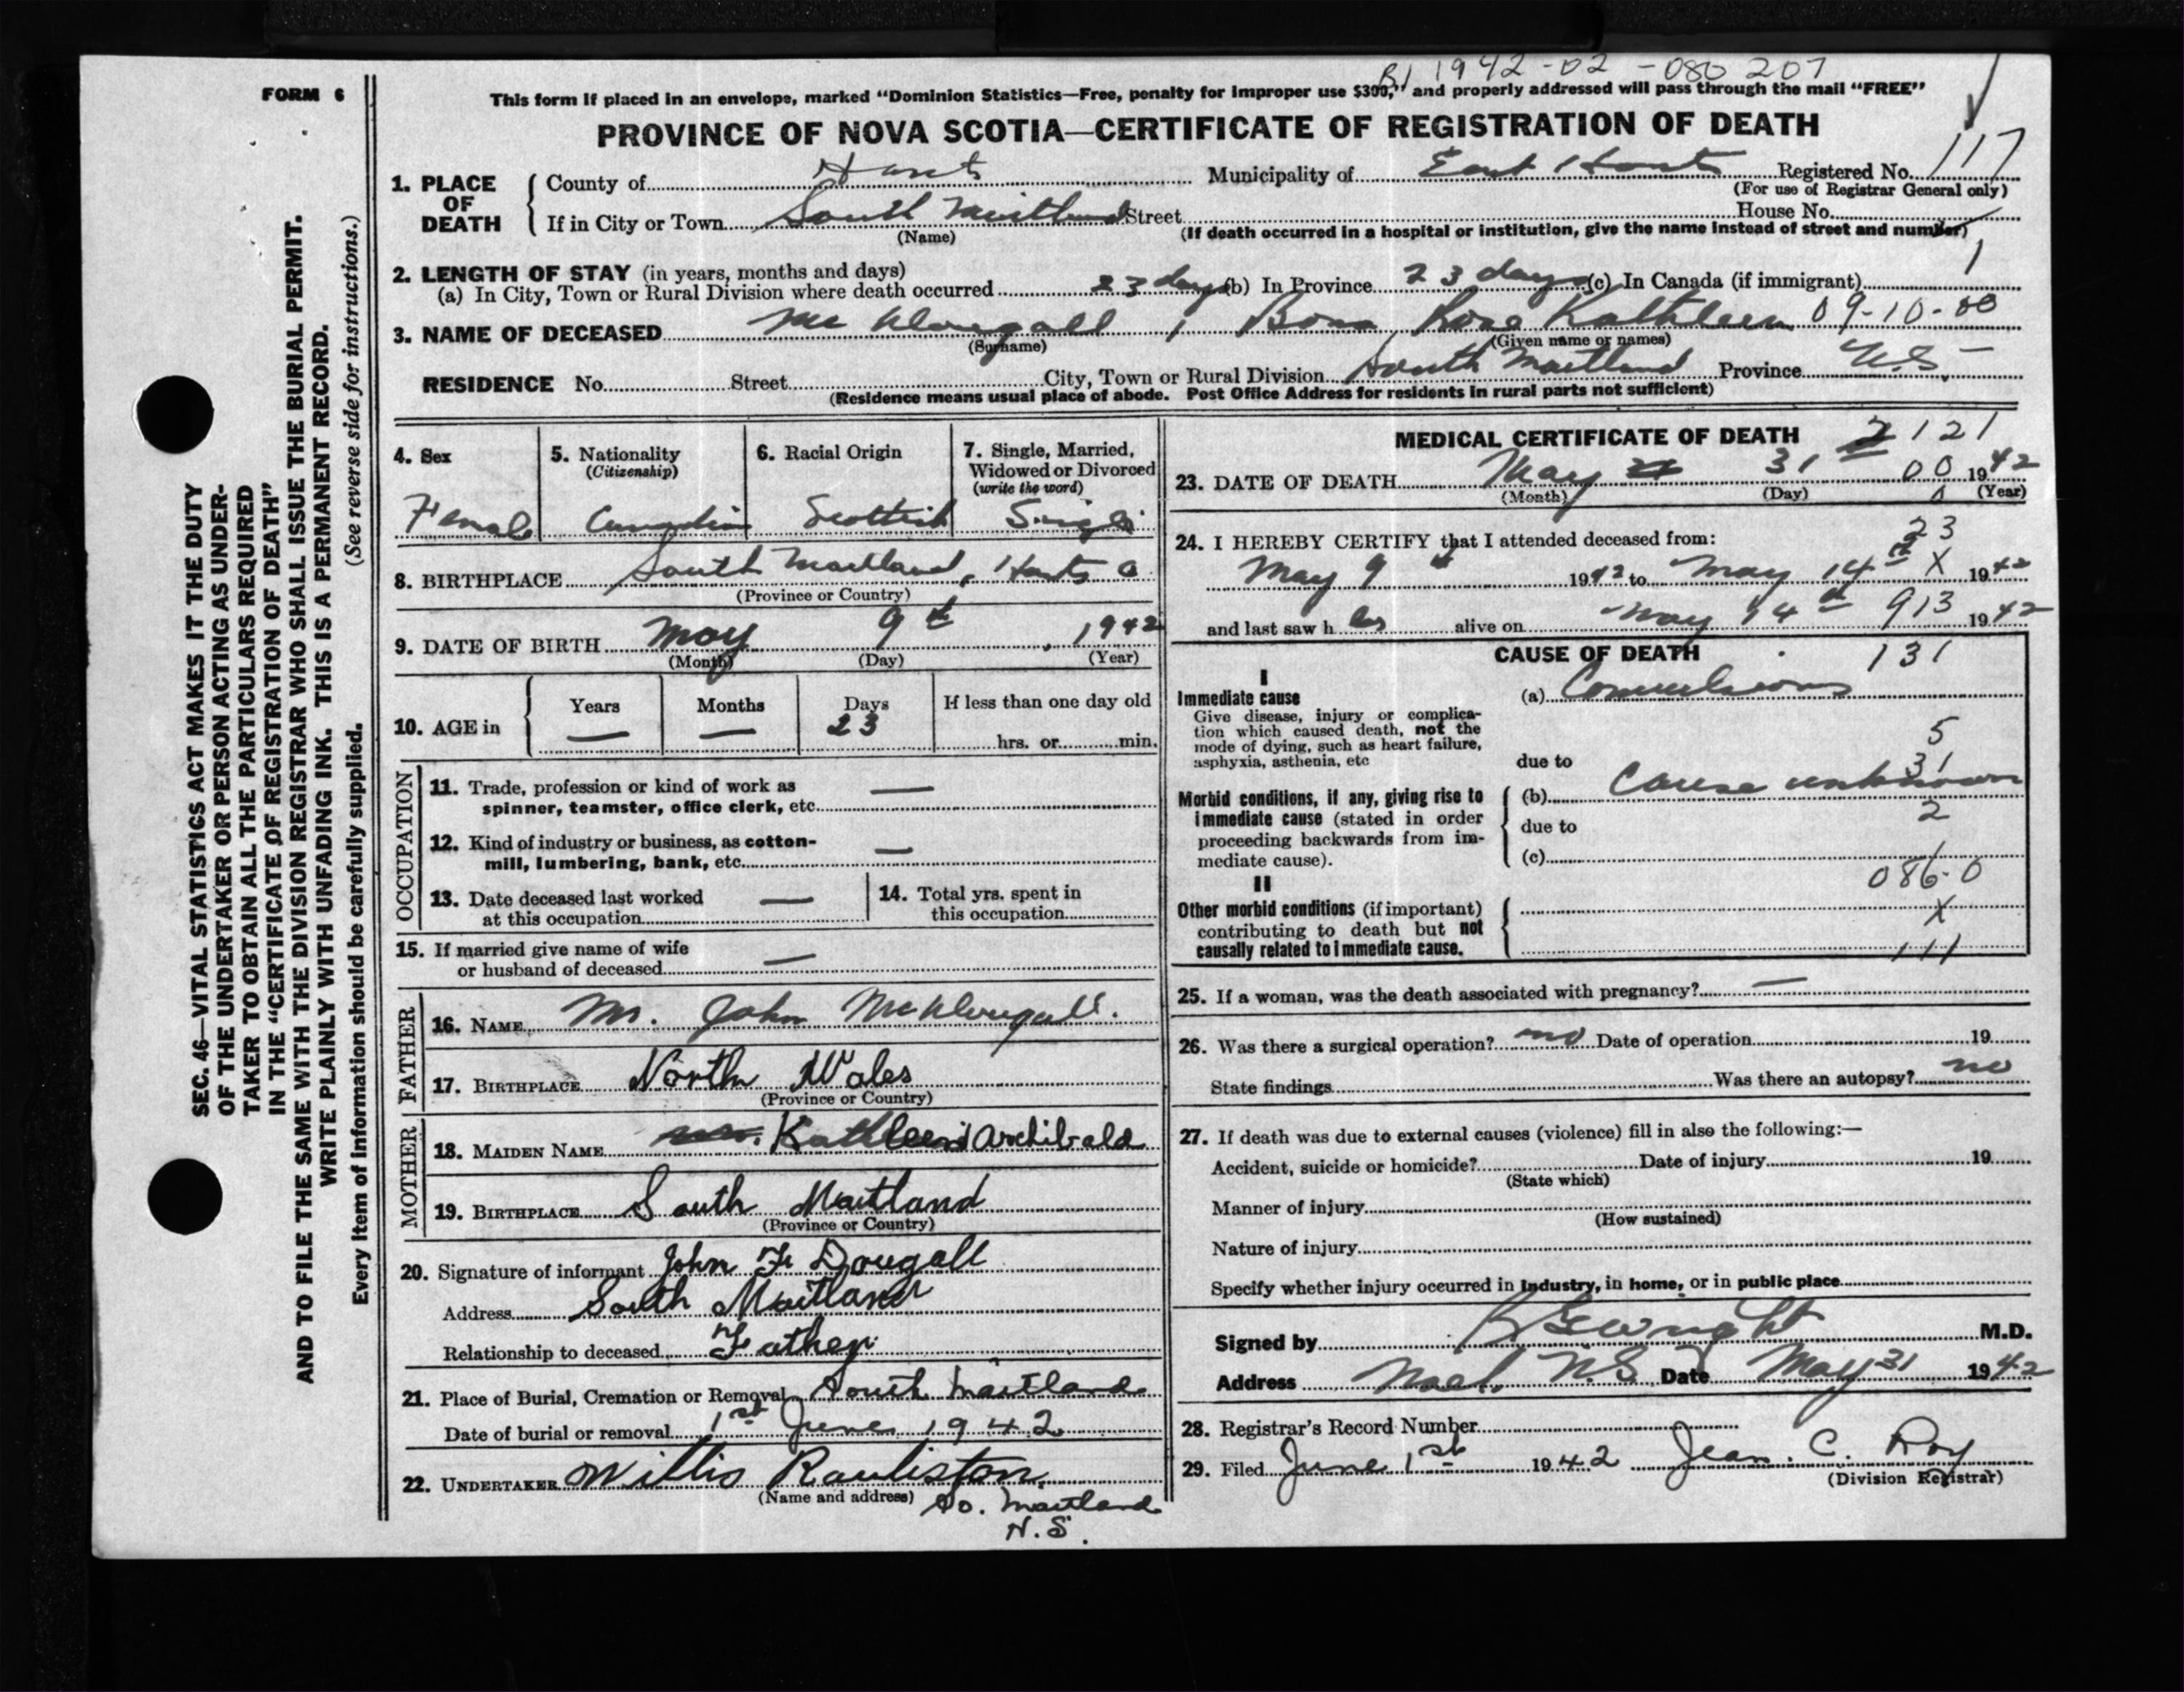 FORM 6
R/ 1942-02-080207
This form if placed in an envelope, marked "Dominion Statistics—Free, penalty for improper use $300," and properly addressed will pass through the mail "FREE"
PROVINCE OF NOVA SCOTIA—CERTIFICATE OF REGISTRATION OF DEATH
1. PLACE OF DEATH
County of Hants Municipality of East Hants Registered No. 117
(For use of Registrar General only)
If in City or Town South Maitland Street House No.
(Name) (If death occurred in a hospital or institution, give the name instead of street and number)
1
2. LENGTH OF STAY (in years, months and days)
(a) In City, Town or Rural Division where death occurred 23 days (b) In Province 23 days (c) In Canada (if immigrant)
3. NAME OF DECEASED McDougall, Rose Kathleen 09-10-00
(Surname) (Given name or names)
RESIDENCE No. Street City, Town or Rural Division South Maitland Province N.S.
(Residence means usual place of abode. Post Office Address for residents in rural parts not sufficient)
4. Sex
Female
5. Nationality
(Citizenship)
Canadian
6. Racial Origin
Scottish
7. Single, Married, Widowed or Divorced
(write the word)
Single
8. BIRTHPLACE South Maitland, Hants Co
(Province or Country)
9. DATE OF BIRTH May 9th, 1942
(Month) (Day) (Year)
10. AGE in
Years —
Months —
Days 23
If less than one day old
hrs. or min.
OCCUPATION
11. Trade, profession or kind of work as
spinner, teamster, office clerk, etc. —
12. Kind of industry or business, as cotton-
mill, lumbering, bank, etc. —
13. Date deceased last worked
at this occupation —
14. Total yrs. spent in
this occupation
15. If married give name of wife
or husband of deceased —
FATHER
16. NAME Mr. John McDougall.
17. BIRTHPLACE North Wales
(Province or Country)
MOTHER
18. MAIDEN NAME Kathleen Archibald
19. BIRTHPLACE South Maitland
(Province or Country)
20. Signature of informant John F. Dougall
Address South Maitland
Relationship to deceased Father
21. Place of Burial, Cremation or Removal South Maitland
Date of burial or removal 1st June 1942
22. UNDERTAKER Willis
(Name and address) So. Maitland
N.S.
MEDICAL CERTIFICATE OF DEATH 2121
23. DATE OF DEATH May 31 00 1942
(Month) (Day) (Year)
24. I HEREBY CERTIFY that I attended deceased from: 23
May 9th 1942 to May 14th X 1942
and last saw her alive on May 14th 913 1942
CAUSE OF DEATH 131
I
Immediate cause
Give disease, injury or complica-
tion which caused death, not the
mode of dying, such as heart failure,
asphyxia, asthenia, etc
(a) Convulsions
5
due to 31
Morbid conditions, if any, giving rise to
immediate cause (stated in order
proceeding backwards from im-
mediate cause).
(b) Cause unknown
2
due to
(c)
086.0
II
Other morbid conditions (if important)
contributing to death but not
causally related to immediate cause.
X
111
25. If a woman, was the death associated with pregnancy? —
26. Was there a surgical operation? no Date of operation 19
State findings Was there an autopsy? no
27. If death was due to external causes (violence) fill in also the following:—
Accident, suicide or homicide? Date of injury 19
(State which)
Manner of injury
(How sustained)
Nature of injury
Specify whether injury occurred in industry, in home, or in public place
Signed by Wright M.D.
Address Noel N.S. Date May 31 1942
28. Registrar's Record Number
29. Filed June 1st 1942 Jean C. Roy
(Division Registrar)
SEC. 46—VITAL STATISTICS ACT MAKES IT THE DUTY
OF THE UNDERTAKER OR PERSON ACTING AS UNDER-
TAKER TO OBTAIN ALL THE PARTICULARS REQUIRED
IN THE "CERTIFICATE OF REGISTRATION OF DEATH"
AND TO FILE THE SAME WITH THE DIVISION REGISTRAR WHO SHALL ISSUE THE BURIAL PERMIT.
WRITE PLAINLY WITH UNFADING INK. THIS IS A PERMANENT RECORD.
Every item of information should be carefully supplied. (See reverse side for instructions.)